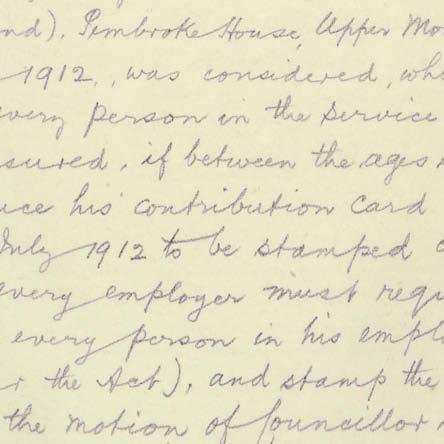 nd). Pembroke House, Upper Mo
1912, was considered, wh
very person in the service
sured, if between the ages
uce his contribution card
July 1912 to be stamped
every employer must requ
every person in his empl
r the Act), and stamp the
the motion of Councillor